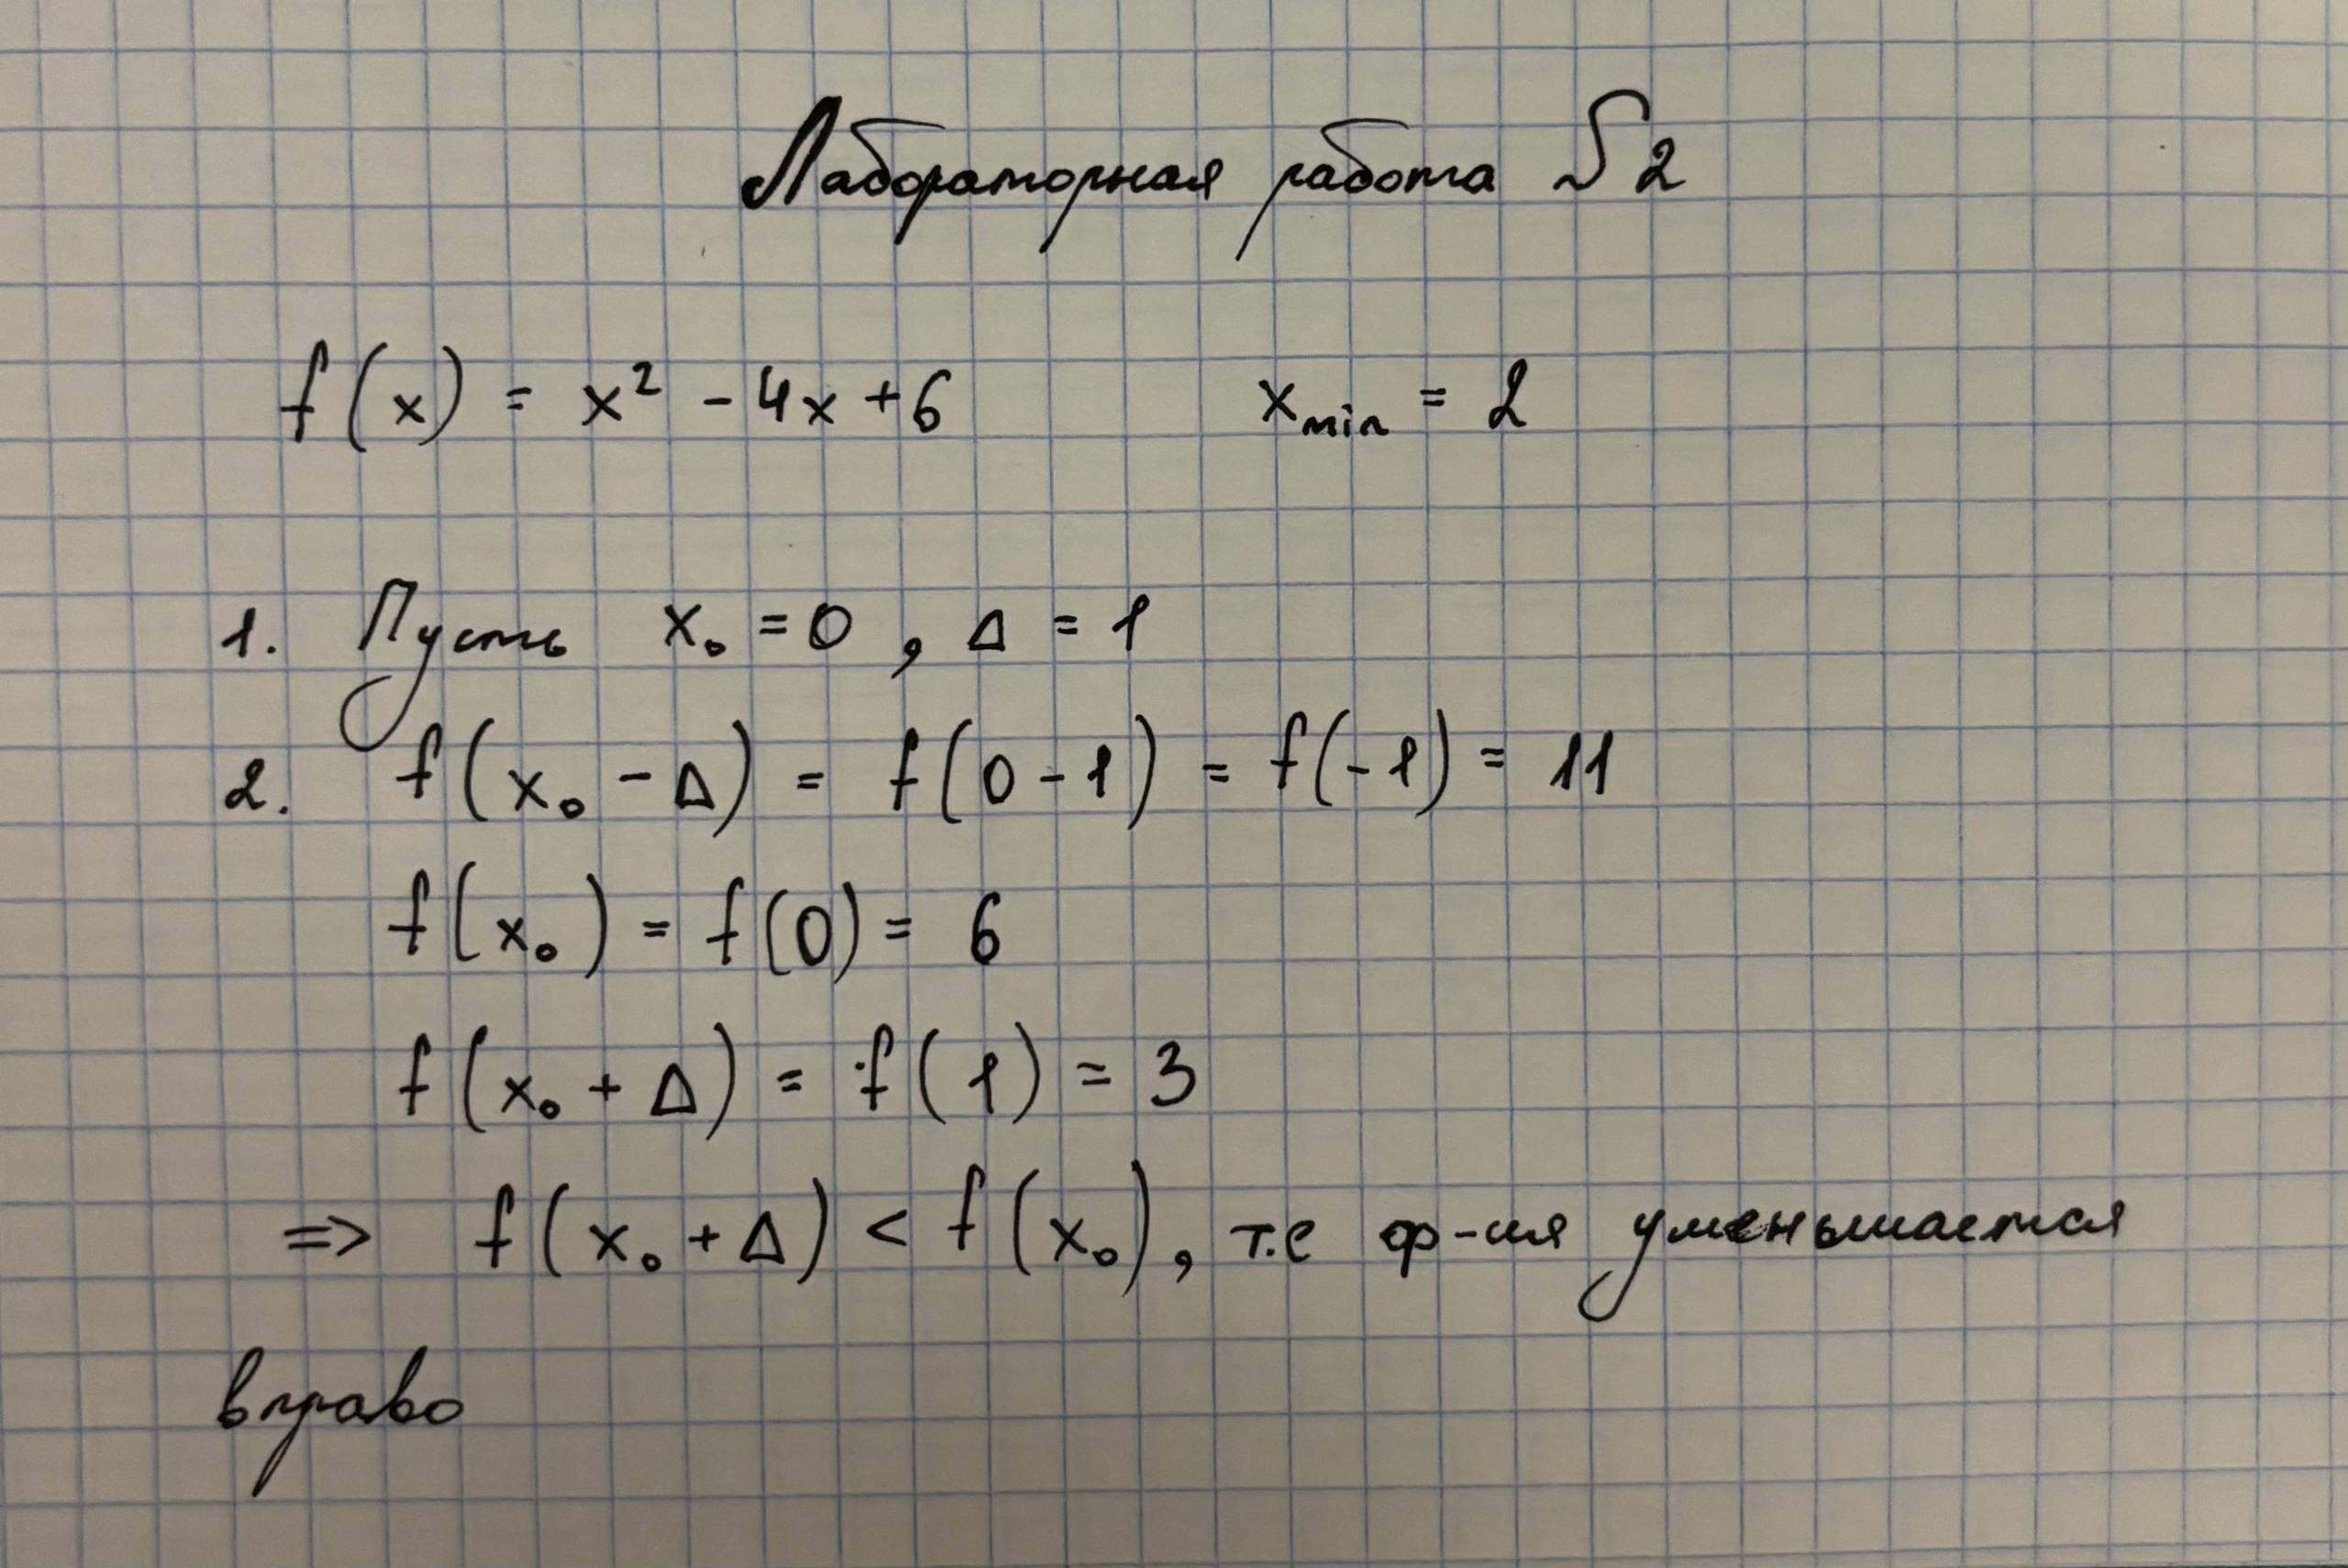 Лабораторная работа №2
f(x) = x² - 4x + 6 x_min = 2
1. Пусть x₀ = 0, Δ = 1
2. f(x₀ - Δ) = f(0 - 1) = f(-1) = 11
f(x₀) = f(0) = 6
f(x₀ + Δ) = f(1) = 3
=> f(x₀ + Δ) < f(x₀), т.е ф-ия уменьшается
вправо